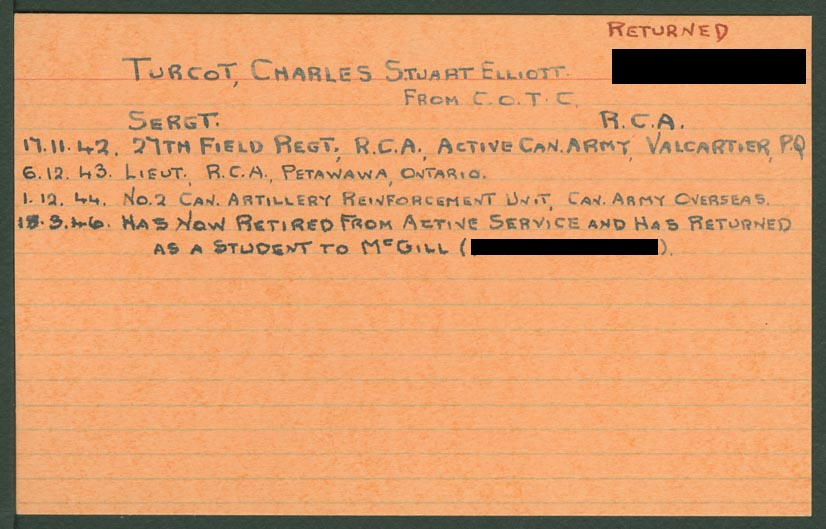 RETURNED
TURCOT, CHARLES STUART ELLIOTT.
FROM C.O.T.C.
SERGT. R.C.A.
17.11.42. 27TH FIELD REGT., R.C.A., ACTIVE CAN. ARMY, VALCARTIER, P.Q
6.12.43. LIEUT., R.C.A., PETAWAWA, ONTARIO.
1.12.44. NO.2 CAN. ARTILLERY REINFORCEMENT UNIT, CAN. ARMY OVERSEAS.
18.3.46. HAS NOW RETIRED FROM ACTIVE SERVICE AND HAS RETURNED
AS A STUDENT TO McGILL ( ).